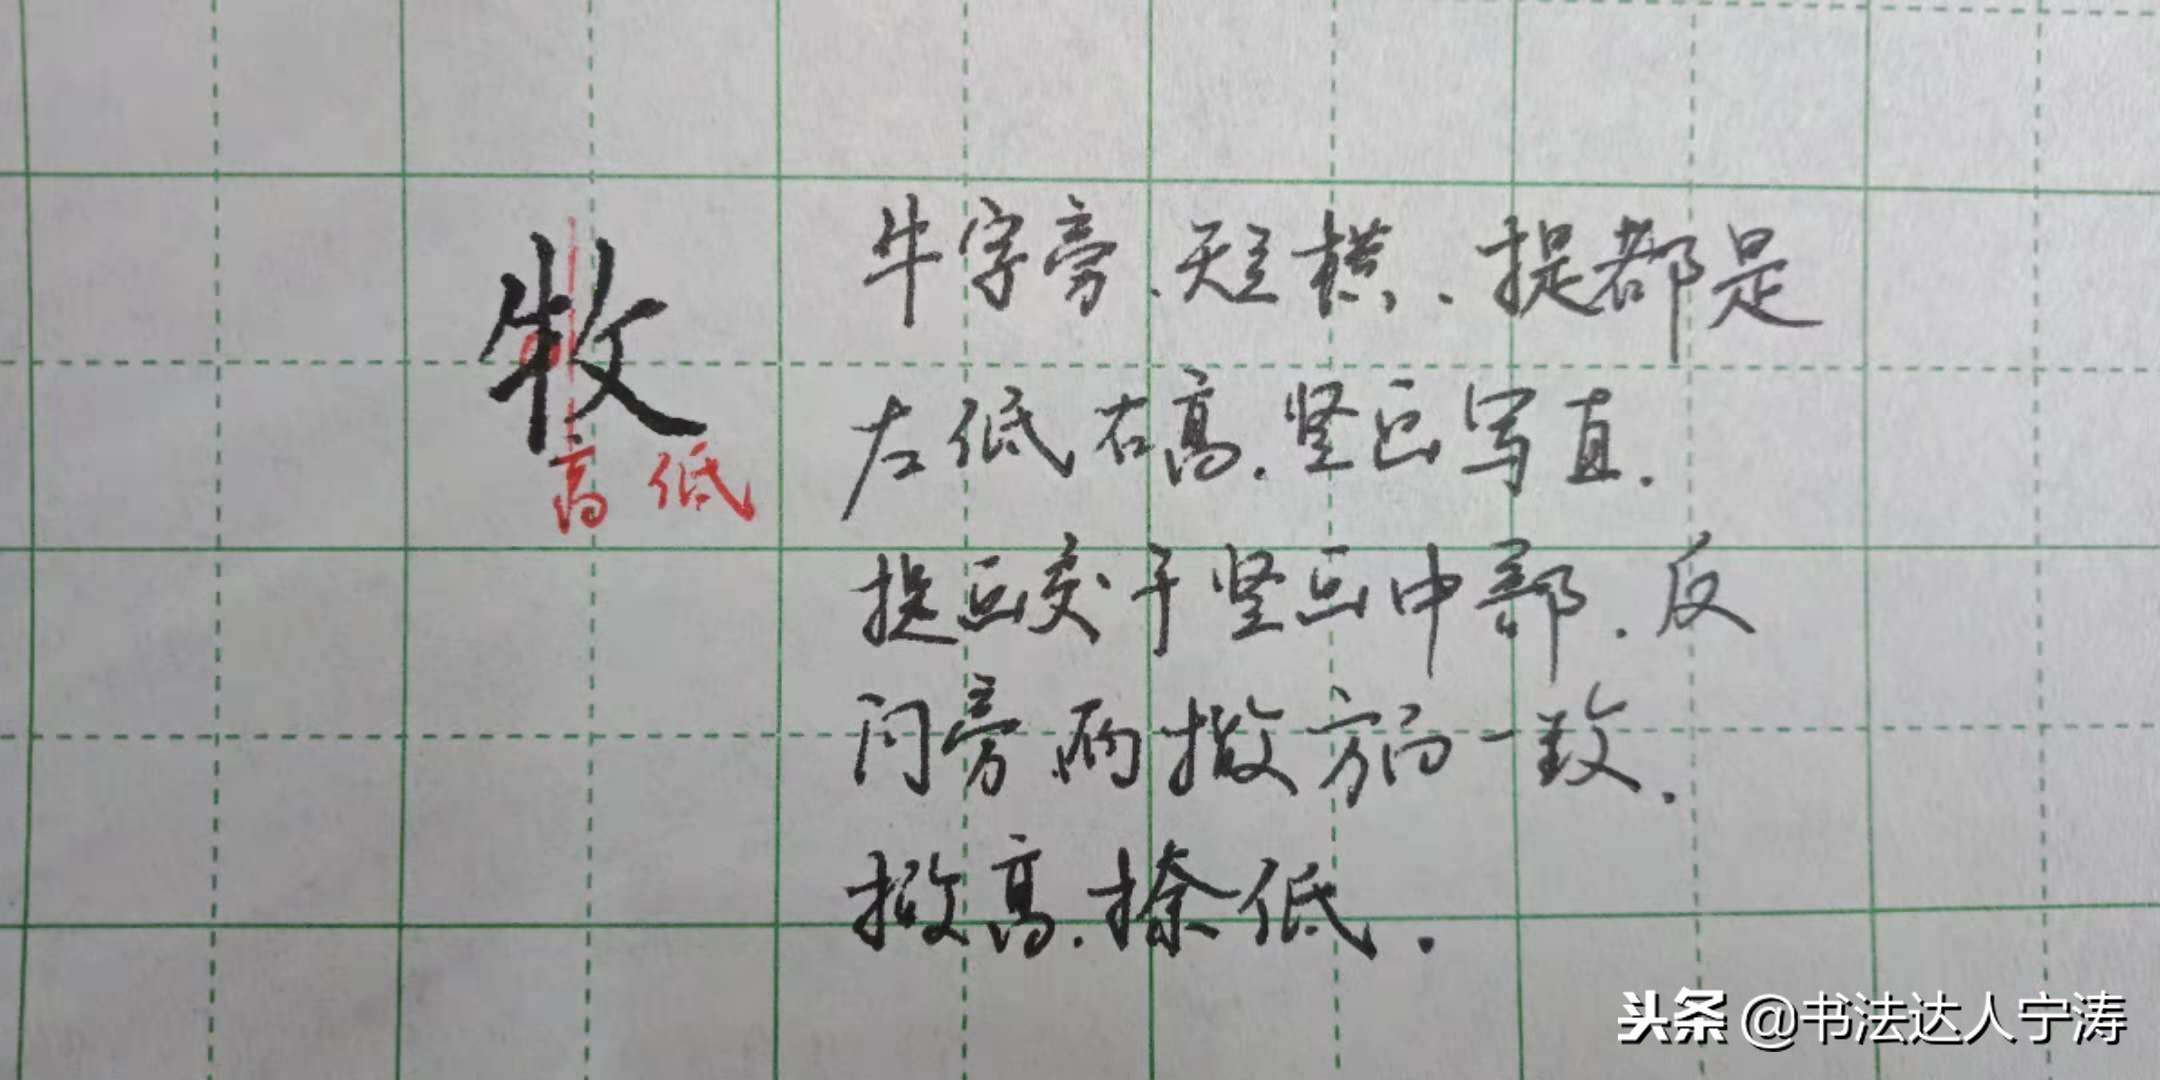 牧
高 低
牛字旁.短横.提都是
左低右高.竖画写直.
提画交于竖画中部.反
问旁两撇方向一致.
撇高.捺低.
头条 @书法达人宁涛